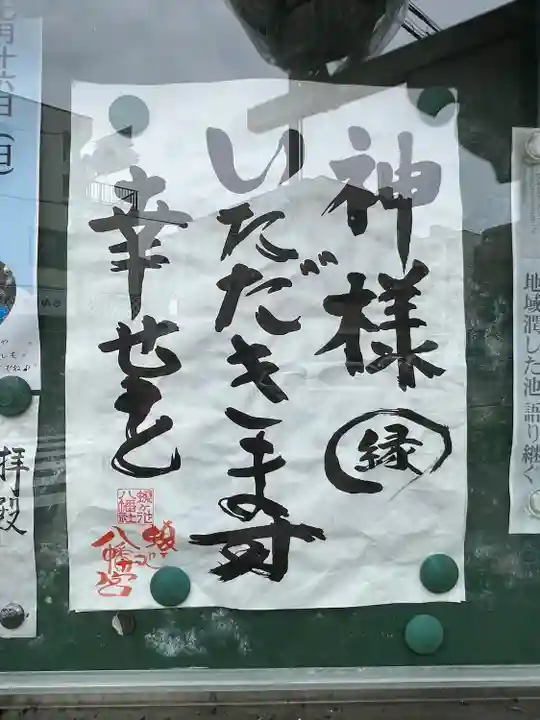 神様
縁
いただきます
幸せを
八幡宮
八幡社
地域潤した池 語り継ぐ
七月十六日(日)
拝殿